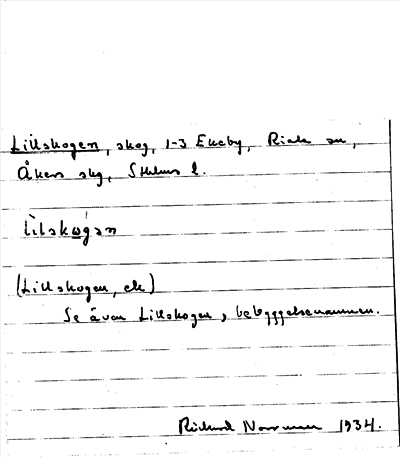 Lillskogen, skog, 1-3 Ekeby, Riala sn,
Åkers skg, Sthlms l.
lìlskωgən
(Lillskogen, ek)
Se även Lillskogen, bebyggelsenamnen.
Rickard 1934.